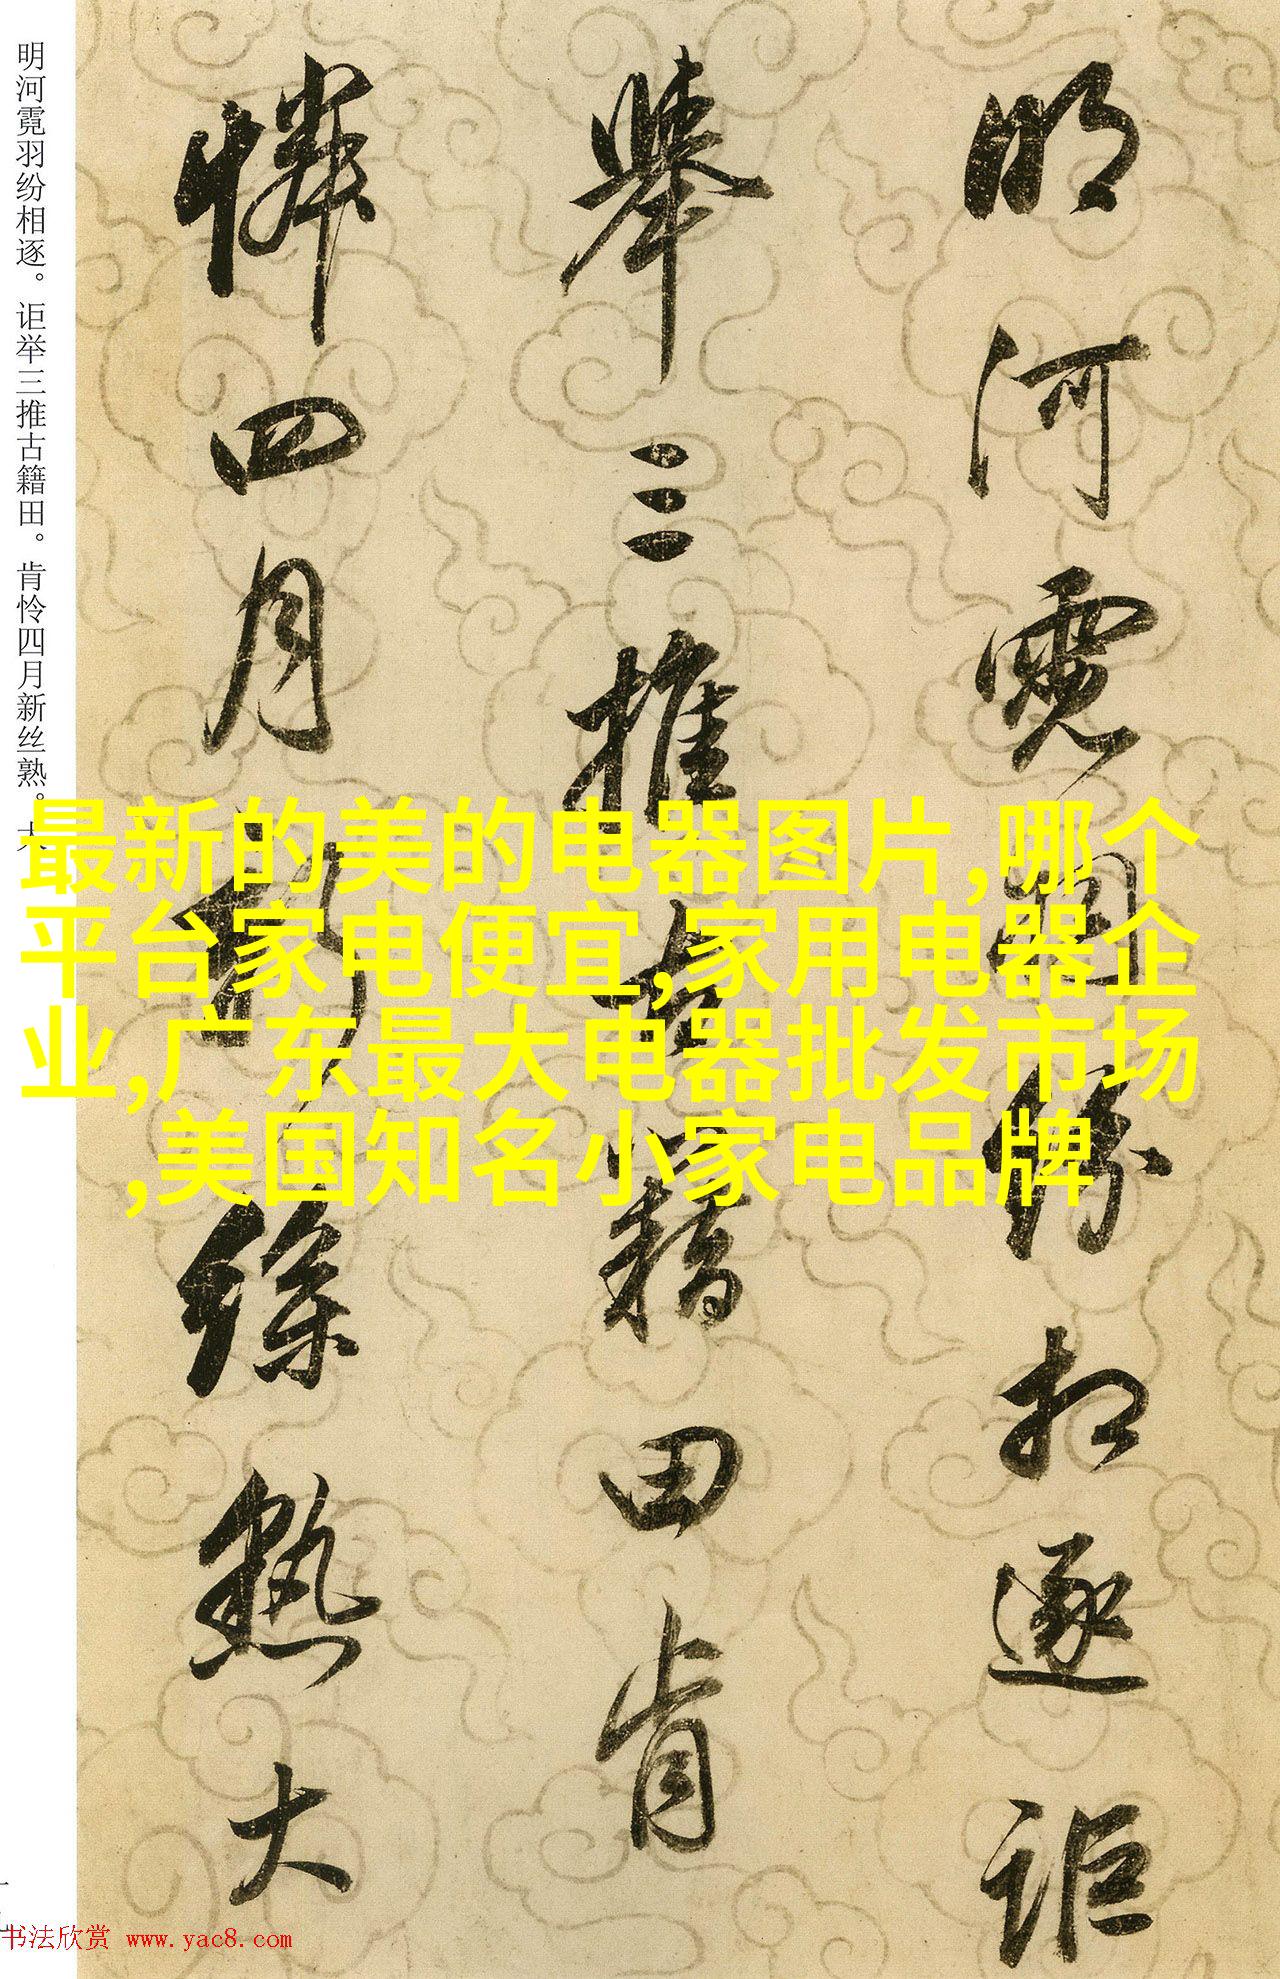 明河霓羽纷相逐。讵举三推古籍田。肯怜四月新丝熟。大
明河霓羽纷相逐讵
举三推古籍田肯
怜四月新丝熟大
最新的美的电器图片,哪个
平台家电便宜,家用电器企
业,广东最大电器批发市场
,美国知名小家电品牌
书法欣赏 www.yac8.com